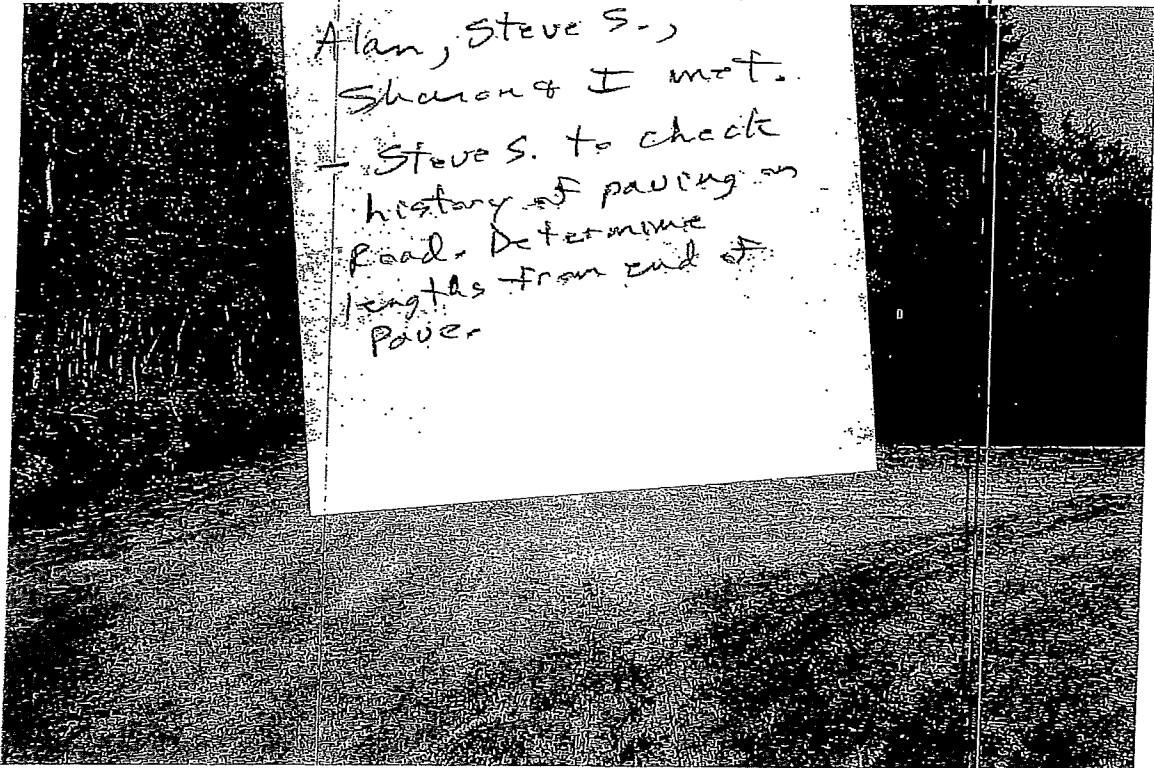 Alan, Steve S.,
Sharon & I met.
- Steve S. to check
history of paving on
Road. Determine
lengths from end of
Pave.